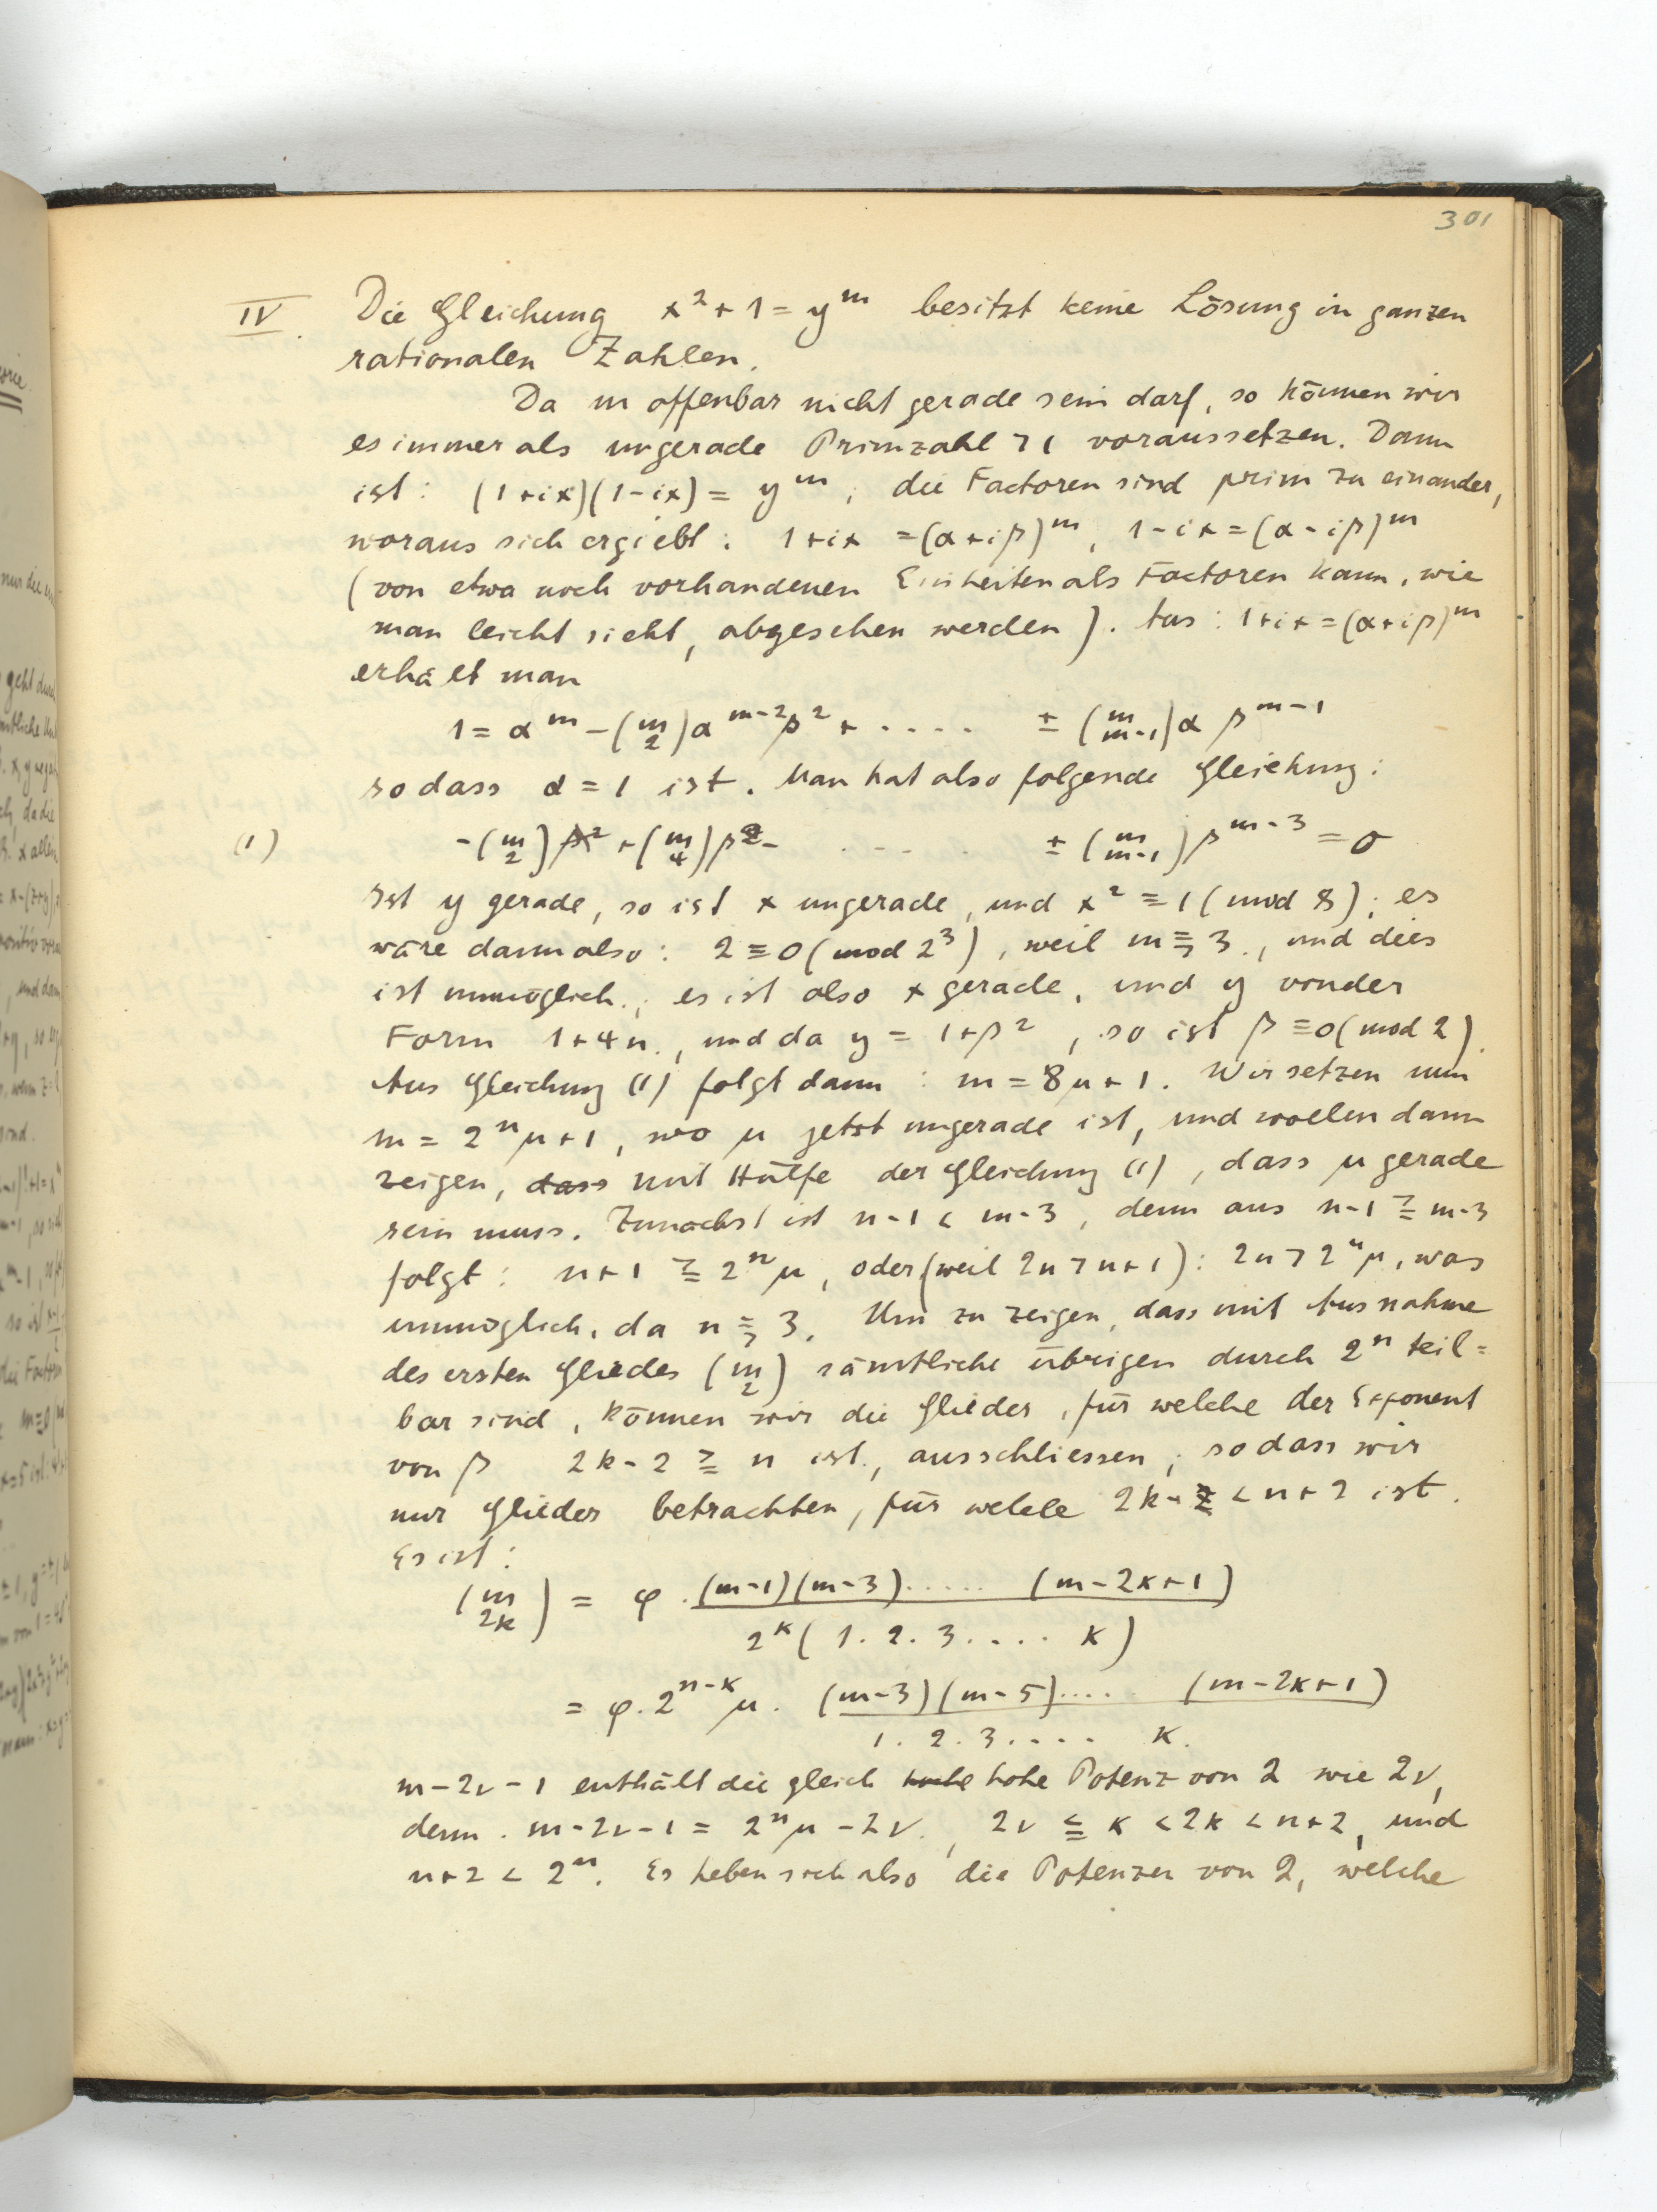 301
IV. Die Gleichung x² + 1 = y^m besitzt keine Lösung in ganzen
rationalen Zahlen.
Da m offenbar nicht gerade sein darf, so können wir
es immer als ungerade Primzahl > 1 voraussetzen. Dann
ist: (1+ix)(1-ix) = y^m, die Factoren sind prim zu einander,
woraus sich ergiebt: 1+ix = (α+iβ)^m, 1-ix = (α-iβ)^m
(von etwa noch vorhandenen Einheiten als Factoren kann, wie
man leicht sieht, abgesehen werden). Aus: 1+ix = (α+iβ)^m
erhält man
1 = α^m - (m 2) α^{m-2} β² + ..... ± (m m-1) α β^{m-1}
so dass α = 1 ist. Man hat also folgende Gleichung:
(1) -(m 2) β² + (m 4) β² - ..... ± (m m-1) β^{m-3} = 0
Ist y gerade, so ist x ungerade, und x² ≡ 1 (mod 8); es
wäre dann also: 2 ≡ 0 (mod 2³), weil m ≧ 3, und dies
ist unmöglich; es ist also x gerade, und y von der
Form 1+4n, und da y = 1+β², so ist β ≡ 0 (mod 2).
Aus Gleichung (1) folgt dann: m = 8μ+1. Wir setzen nun
m = 2^n μ+1, wo μ jetzt ungerade ist, und wollen dann
zeigen, dass mit Hülfe der Gleichung (1), dass μ gerade
sein muss. Zunächst ist n-1 < m-3, denn aus n-1 ≧ m-3
folgt: n+1 ≧ 2^n μ, oder (weil 2n > n+1): 2n > 2^n μ, was
unmöglich, da n ≧ 3. Um zu zeigen, dass mit Ausnahme
des ersten Gliedes (m 2) sämtliche übrigen durch 2^n teil=
bar sind, können wir die Glieder, für welche der Exponent
von β 2k-2 ≧ n ist, ausschliessen, so dass wir
nur Glieder betrachten, für welche 2k < n+2 ist.
Es ist:
(m 2k) = φ . (m-1)(m-3)...... (m-2k+1)
2^k (1.2.3.... k)
= φ. 2^{n-k} μ . (m-3)(m-5).... (m-2k+1)
1.2.3.... k.
m-2ν-1 enthält die gleich hohe hohe Potenz von 2 wie 2ν,
denn. m-2ν-1 = 2^n μ - 2ν, 2ν ≦ k < 2k < n+2, und
n+2 < 2^n. Es heben sich also die Potenzen von 2, welche